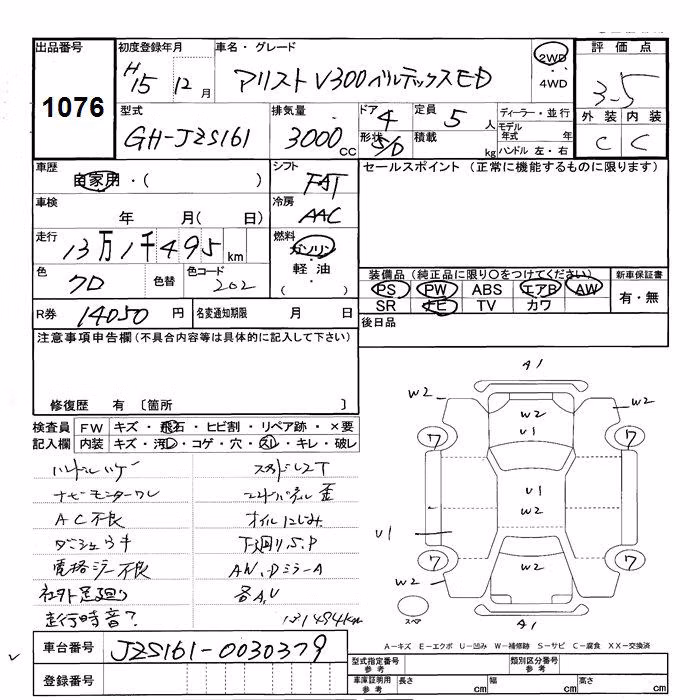 出品番号 初度登録年月 車名・グレード 評価点
1076 H15 12月 アリストV300ベルテックスED 2WD 4WD 3.5
型式 排気量 ドア 定員 ディーラー・並行 外装 内装
GH-JZS161 3000CC 4 5人 モデル年式 年 C C
形状 5/D 積載 kg ハンドル 左・右
車歴 自家用・( ) シフト FAT セールスポイント (正常に機能するものに限ります)
車検 年 月( 日) 冷房 AAC
走行 13万1千495km 燃料 ガソリン・軽油 ( )
色 クロ 色替 色コード 202
装備品 (純正品に限り○をつけてください) 新車保証書
PS PW ABS エアB AW 有・無
SR ナビ TV カワ
R券 14050円 名変通知期限 月 日 後日品
注意事項申告欄 (不具合内容等は具体的に記入して下さい)
修復歴 有 〔箇所 〕
検査員 FW キズ・飛石・ヒビ割・リペア跡・×要
記入欄 内装 キズ・汚レ・コゲ・穴・スレ・キレ・破レ
ハンドルハゲ
ナビモニターワレ
AC不良 オイルにじみ
ダシュウキ 下廻りS.P
電格ミラー不良 AW、DミラーA
社外足廻り 各A,U
走行時音? 131494km
A1
W2 W2 W2
U1
7 7
U1
W2
U1
7 7
W2 W2 W2
スペア A1
車台番号 JZS161-0030379
登録番号
A-キズ E-エクボ U-凹み W-補修跡 S-サビ C-腐食 XX-交換済
型式指定番号 参考 類別区分番号 参考
車庫証明用 参考 長さ cm 幅 cm 高さ cm